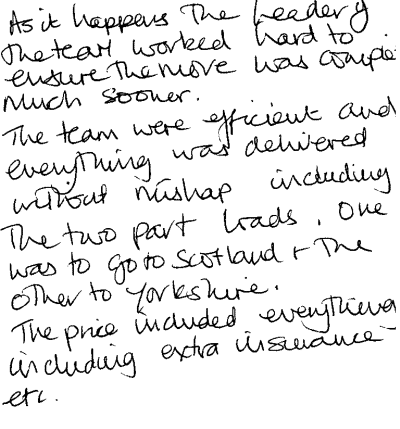 As it happens The Leader of
The team worked hard to
ensure The move was comple
much sooner.
The team were efficient and
everything was delivered
without mishap including
The two part loads. One
was to go to Scotland + The
other to Yorkshire.
The price included everything
including extra insurance
etc.